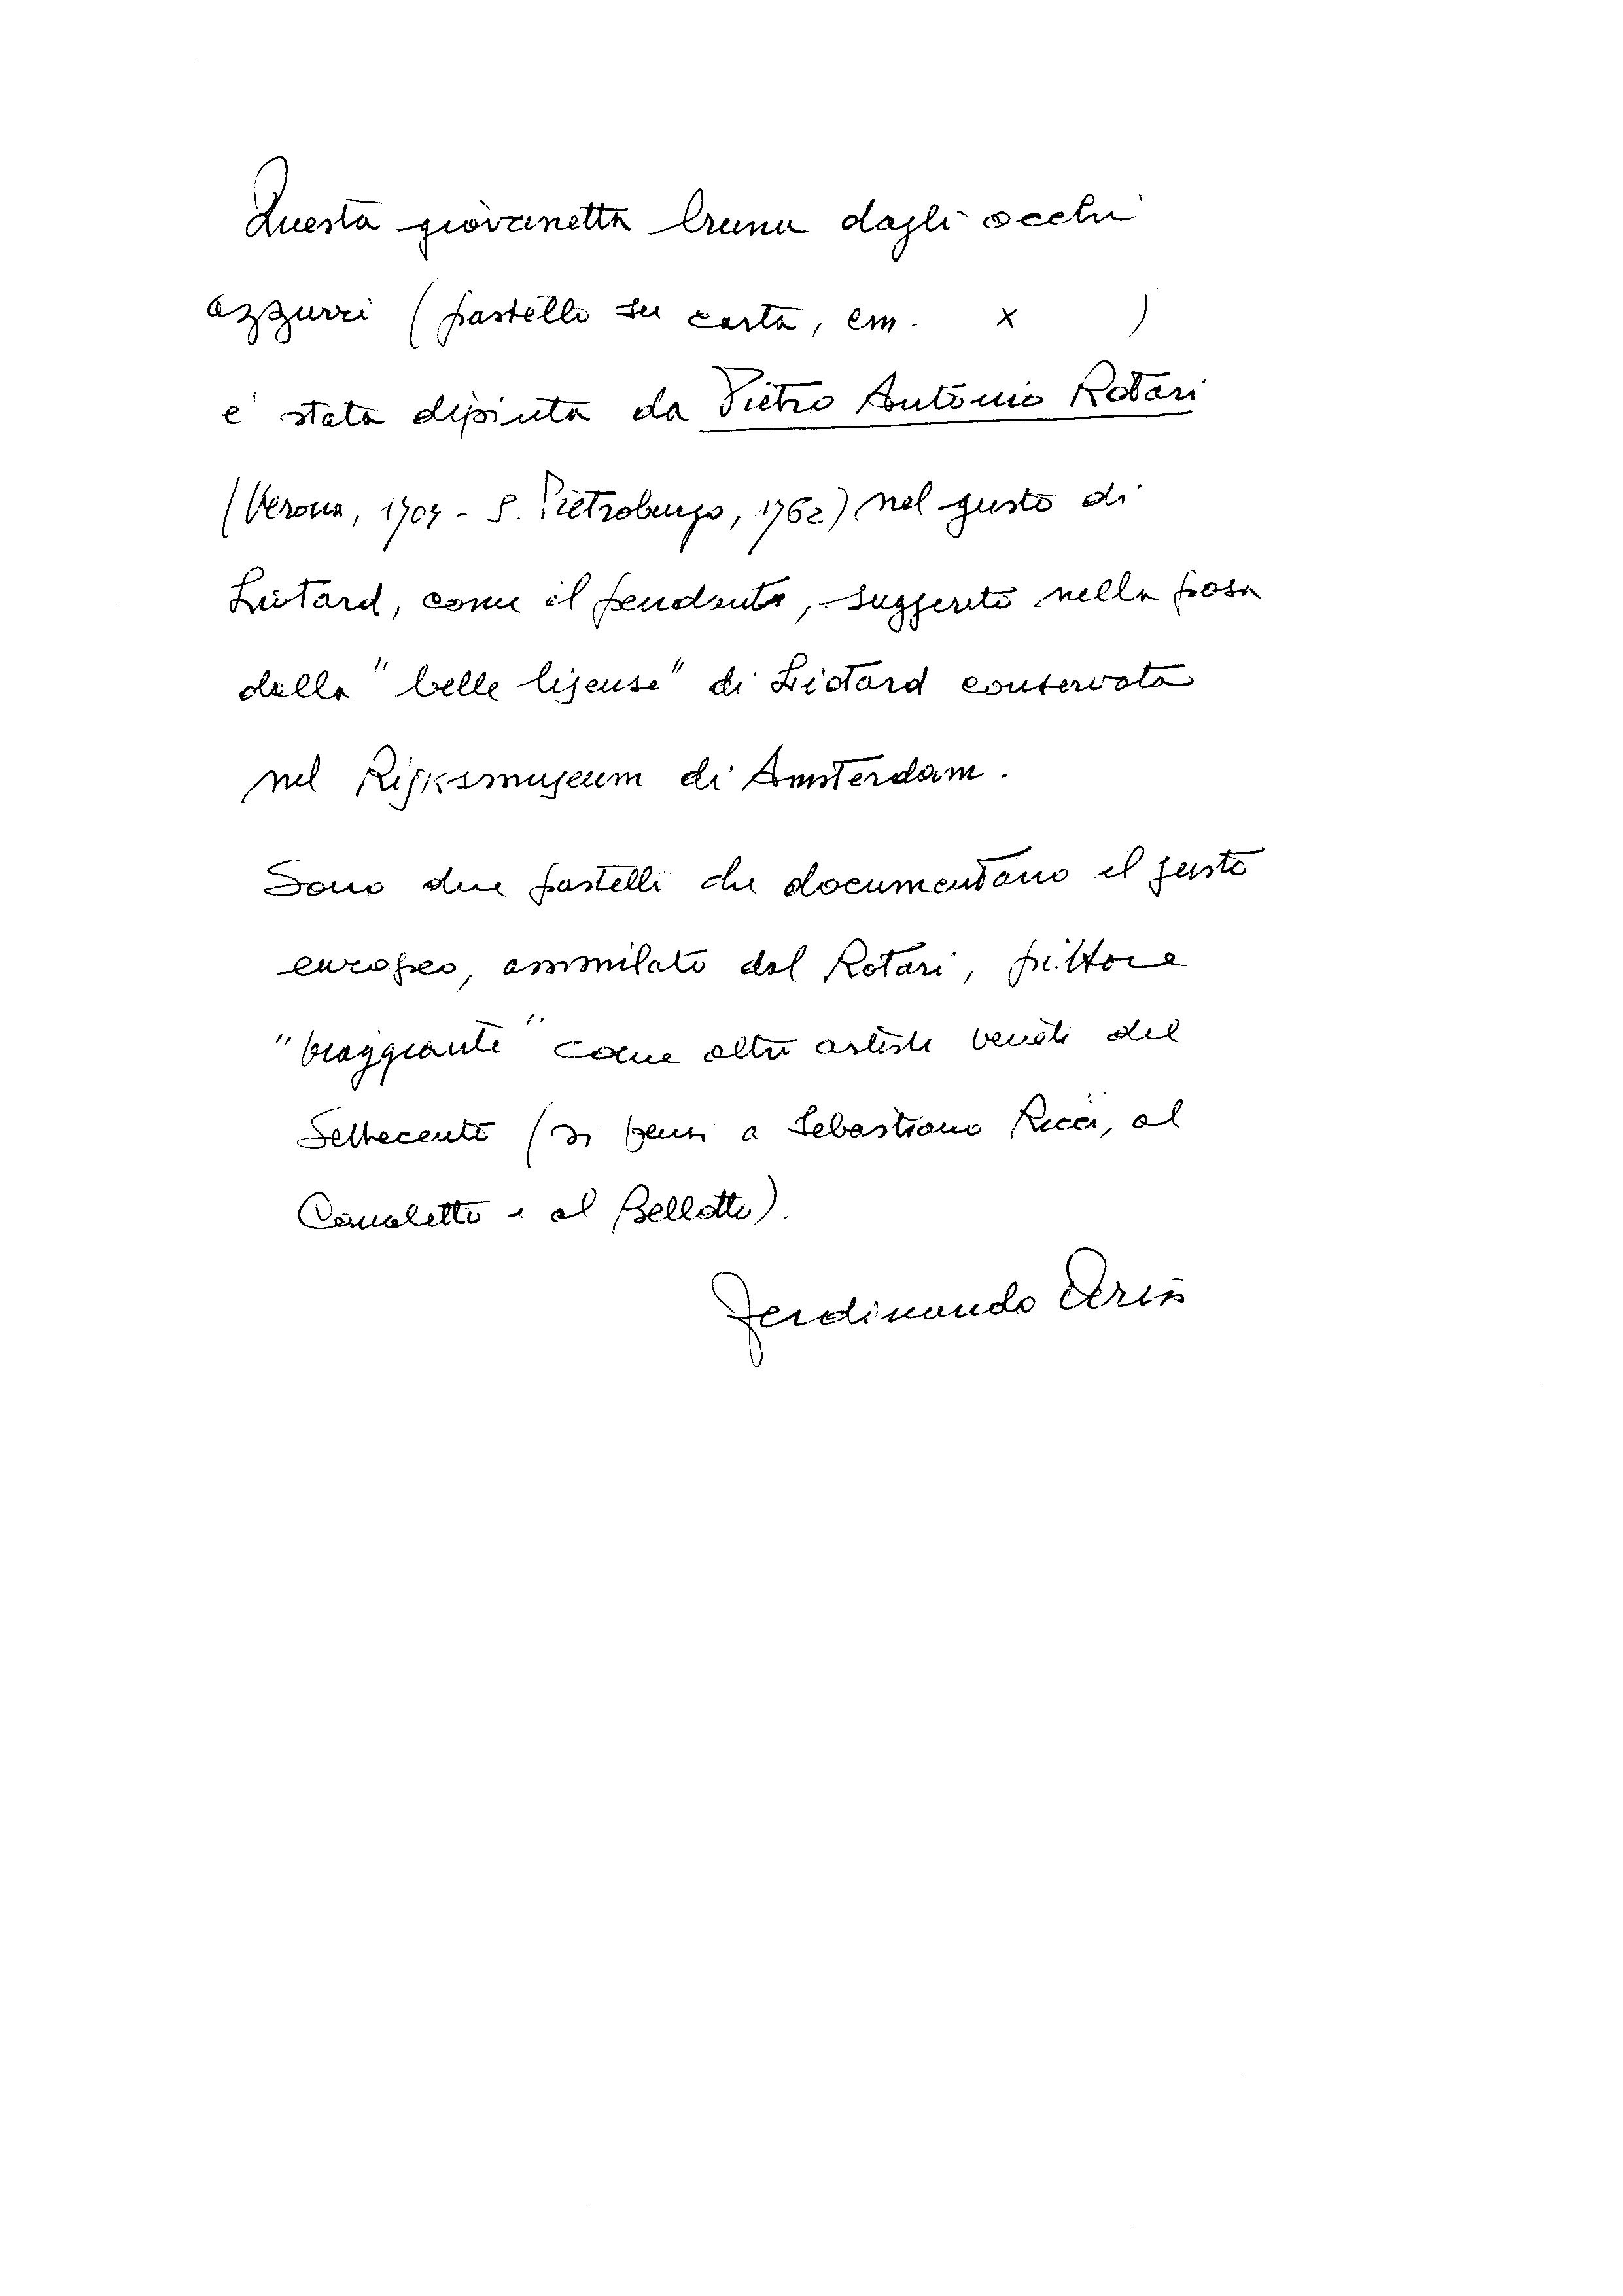 Questa giovanetta bruna dagli occhi
azzurri (pastello su carta, cm. x )
e' stata dipinta da Pietro Antonio Rotari
(Verona, 1707 - S. Pietroburgo, 1762) nel gusto di
Liotard, come il pendante, suggerito nella posa
dalla "belle liseuse" di Liotard conservata
nel Rijksmuseum di Amsterdam.
Sono due pastelli che documentano il gusto
europeo, assimilato dal Rotari, pittore
"viaggiante" come altri artisti veneti del
Settecento (si pensi a Sebastiano Ricci, al
Canaletto e al Bellotto).
Ferdinando Arisi